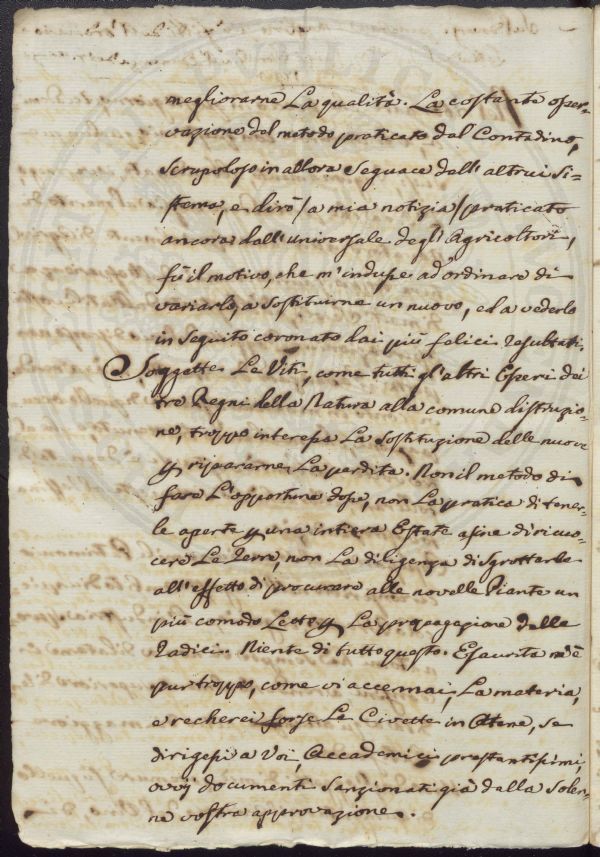 megliorarne La qualità. La costante osser-
vazione del metodo praticato dal Contadino,
Scrupoloso in allora Seguace dell'altrui Si-
stema, e dirò /a mia notizia/ praticato
ancora dall'universale degl'Agricoltori,
fù il motivo, che m'indusse ad ordinare di
variarlo, a Sostituirne un nuovo, ed a vederlo
in Seguito coronato dai più felici resultati.
Soggette Le Viti, come tutti gl'altri Esseri dei
tre Regni della Natura alla comune distruzio-
ne, troppo interessa La Sostituzione delle nuove
p ripararne La perdita. Non il metodo di
fare L'opportune dose, non La pratica di tener-
le aperte p una intiera Estate a fine di ricuo-
cere Le Terre, non La diligenza di Sgrottarle
all'effetto di procurare alle novelle Piante un
più comodo Letto p La propagazione delle
Radici. Niente di tutto questo. Esaurita n'è
pur troppo, come vi accennai, La materia,
e recherei forse Le Civette in Atene, se
dirigessi a Voi, Accademici prestantissimi,
ovvj documenti Sanzionati già dalla Solen-
ne vostra approvazione.